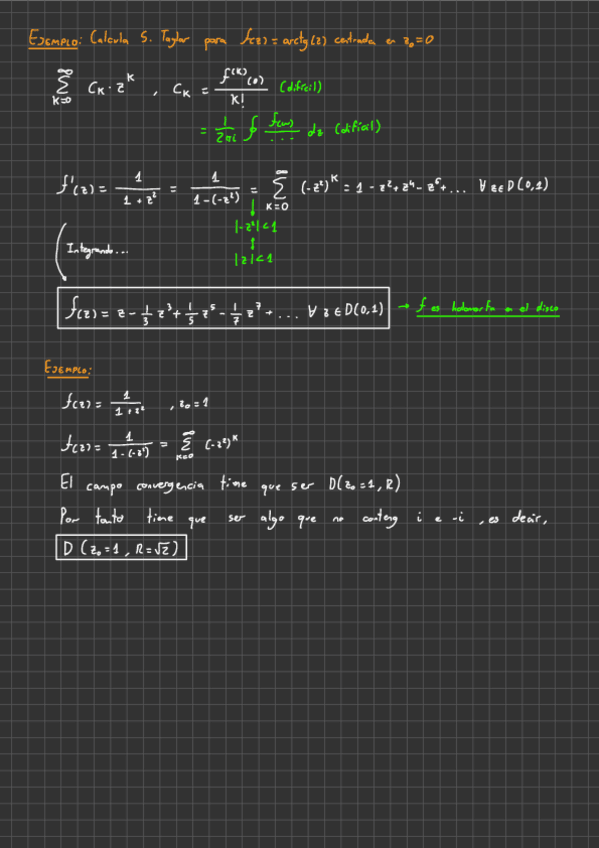 EJEMPLO: Calcula S. Taylor para f(z) = arctg(z) centrada en z₀=0
∞ Σ k=0 Cₖ · zᵏ , Cₖ = f⁽ᵏ⁾(0) / k! (difícil)
= 1/2πi ∮ f(w)/... dz (difícil)
f'(z) = 1/(1+z²) = 1/(1-(-z²)) = ∞ Σ k=0 (-z²)ᵏ = 1 - z² + z⁴ - z⁶ + ... ∀ z∈D(0,1)
↓
|-z²|<1
↕
Integrando...
|z|<1
f(z) = z - 1/3 z³ + 1/5 z⁵ - 1/7 z⁷ + ... ∀ z∈D(0,1) → f es holomorfa en el disco
EJEMPLO:
f(z) = 1/(1+z²) , z₀=1
f(z) = 1/(1-(-z²)) = ∞ Σ k=0 (-z²)ᵏ
El campo convergencia tiene que ser D(z₀=1, R)
Por tanto tiene que ser algo que no conteng i e -i , es decir,
D (z₀=1, R=√2)